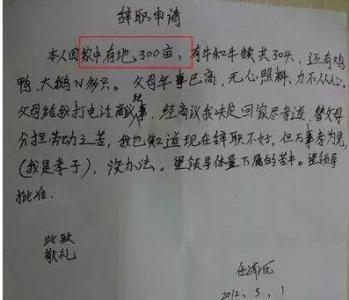 辞职申请
本人因家中有地,300亩,有牛和牛犊共30头,还有鸡
鸭、大鹅N多只。父母年事已高,无心照料,力不从心。
父母给我打电话商议,经商议我决定回家尽孝道,替父母
分担劳动之苦,我也知道现在辞职不好,但百事孝为先
(我是孝子),没办法。望领导体量下属的苦中。望领导
批准.
此致
敬礼
2012, 3, 1